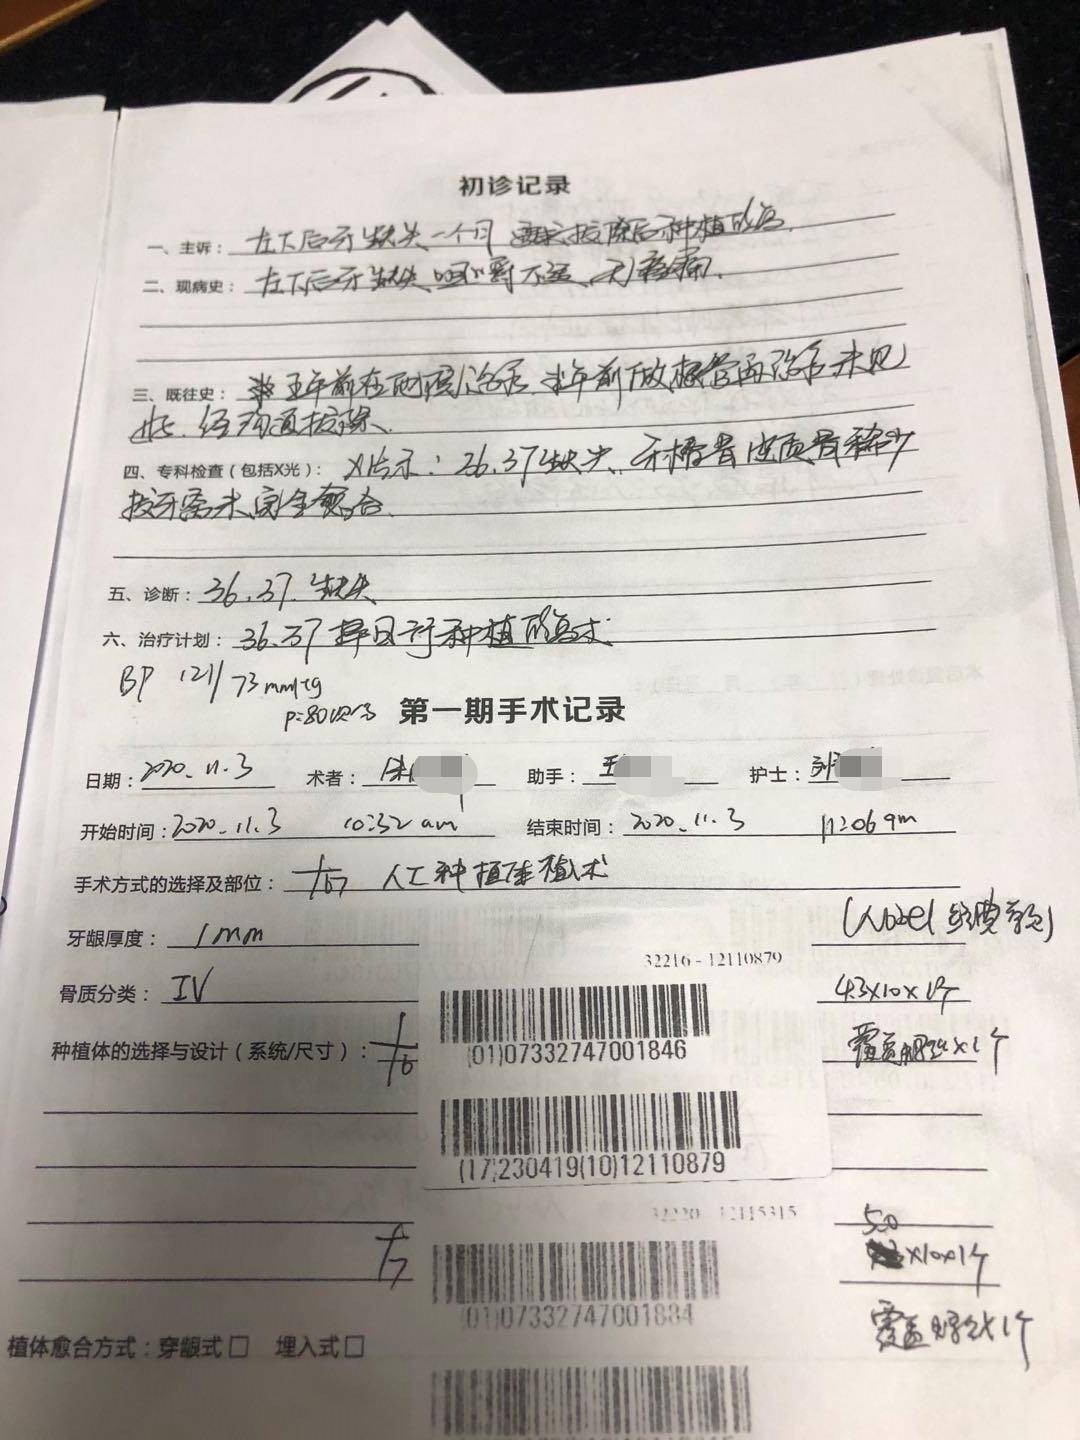 初诊记录
一、主诉： 左下后牙缺失一个月 要求拔除后种植修复.
二、现病史： 左下后牙缺失、咀嚼不适、无疼痛.
三、既往史： 五年前在附院治疗.半年前做根管再治疗未见
好转.经沟通拔除.
四、专科检查（包括X光）： X片示：36.37缺失、牙槽骨皮质骨稀少
拔牙窝未完全愈合、
五、诊断： 36.37.缺失
六、治疗计划： 36.37择日行种植修复术
BP 121/73mmHg
P=80次/分
第一期手术记录
日期： 2020.11.3 术者： 助手： 王 护士：
开始时间： 2020.11.3 10:32am 结束时间： 2020.11.3 11:06am
手术方式的选择及部位： 67 人工种植体植入术
牙龈厚度： 1mm (Nobel 经典系统)
32216-12110879
骨质分类： IV 4.3x10x1个
(01)07332747001846
种植体的选择与设计（系统/尺寸）： 6 覆盖螺丝x1个
(17)230419(10)12110879
32220-12115315
5.0
7 x10x1个
(01)07332747001884
植体愈合方式：穿龈式□ 埋入式□ 覆盖螺丝x1个